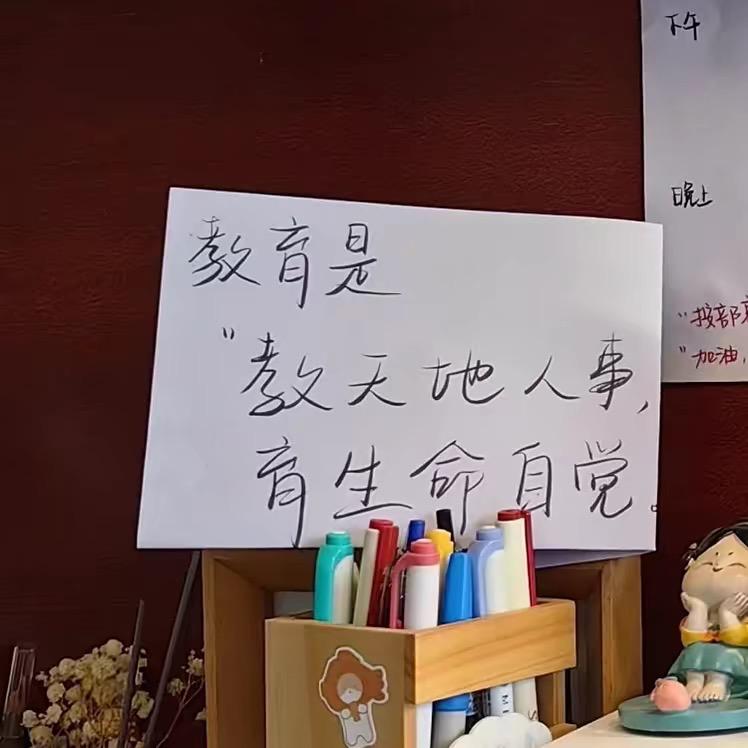 教育是
“教天地人事,
育生命自觉。
下午
晚上
“按部
“加油,